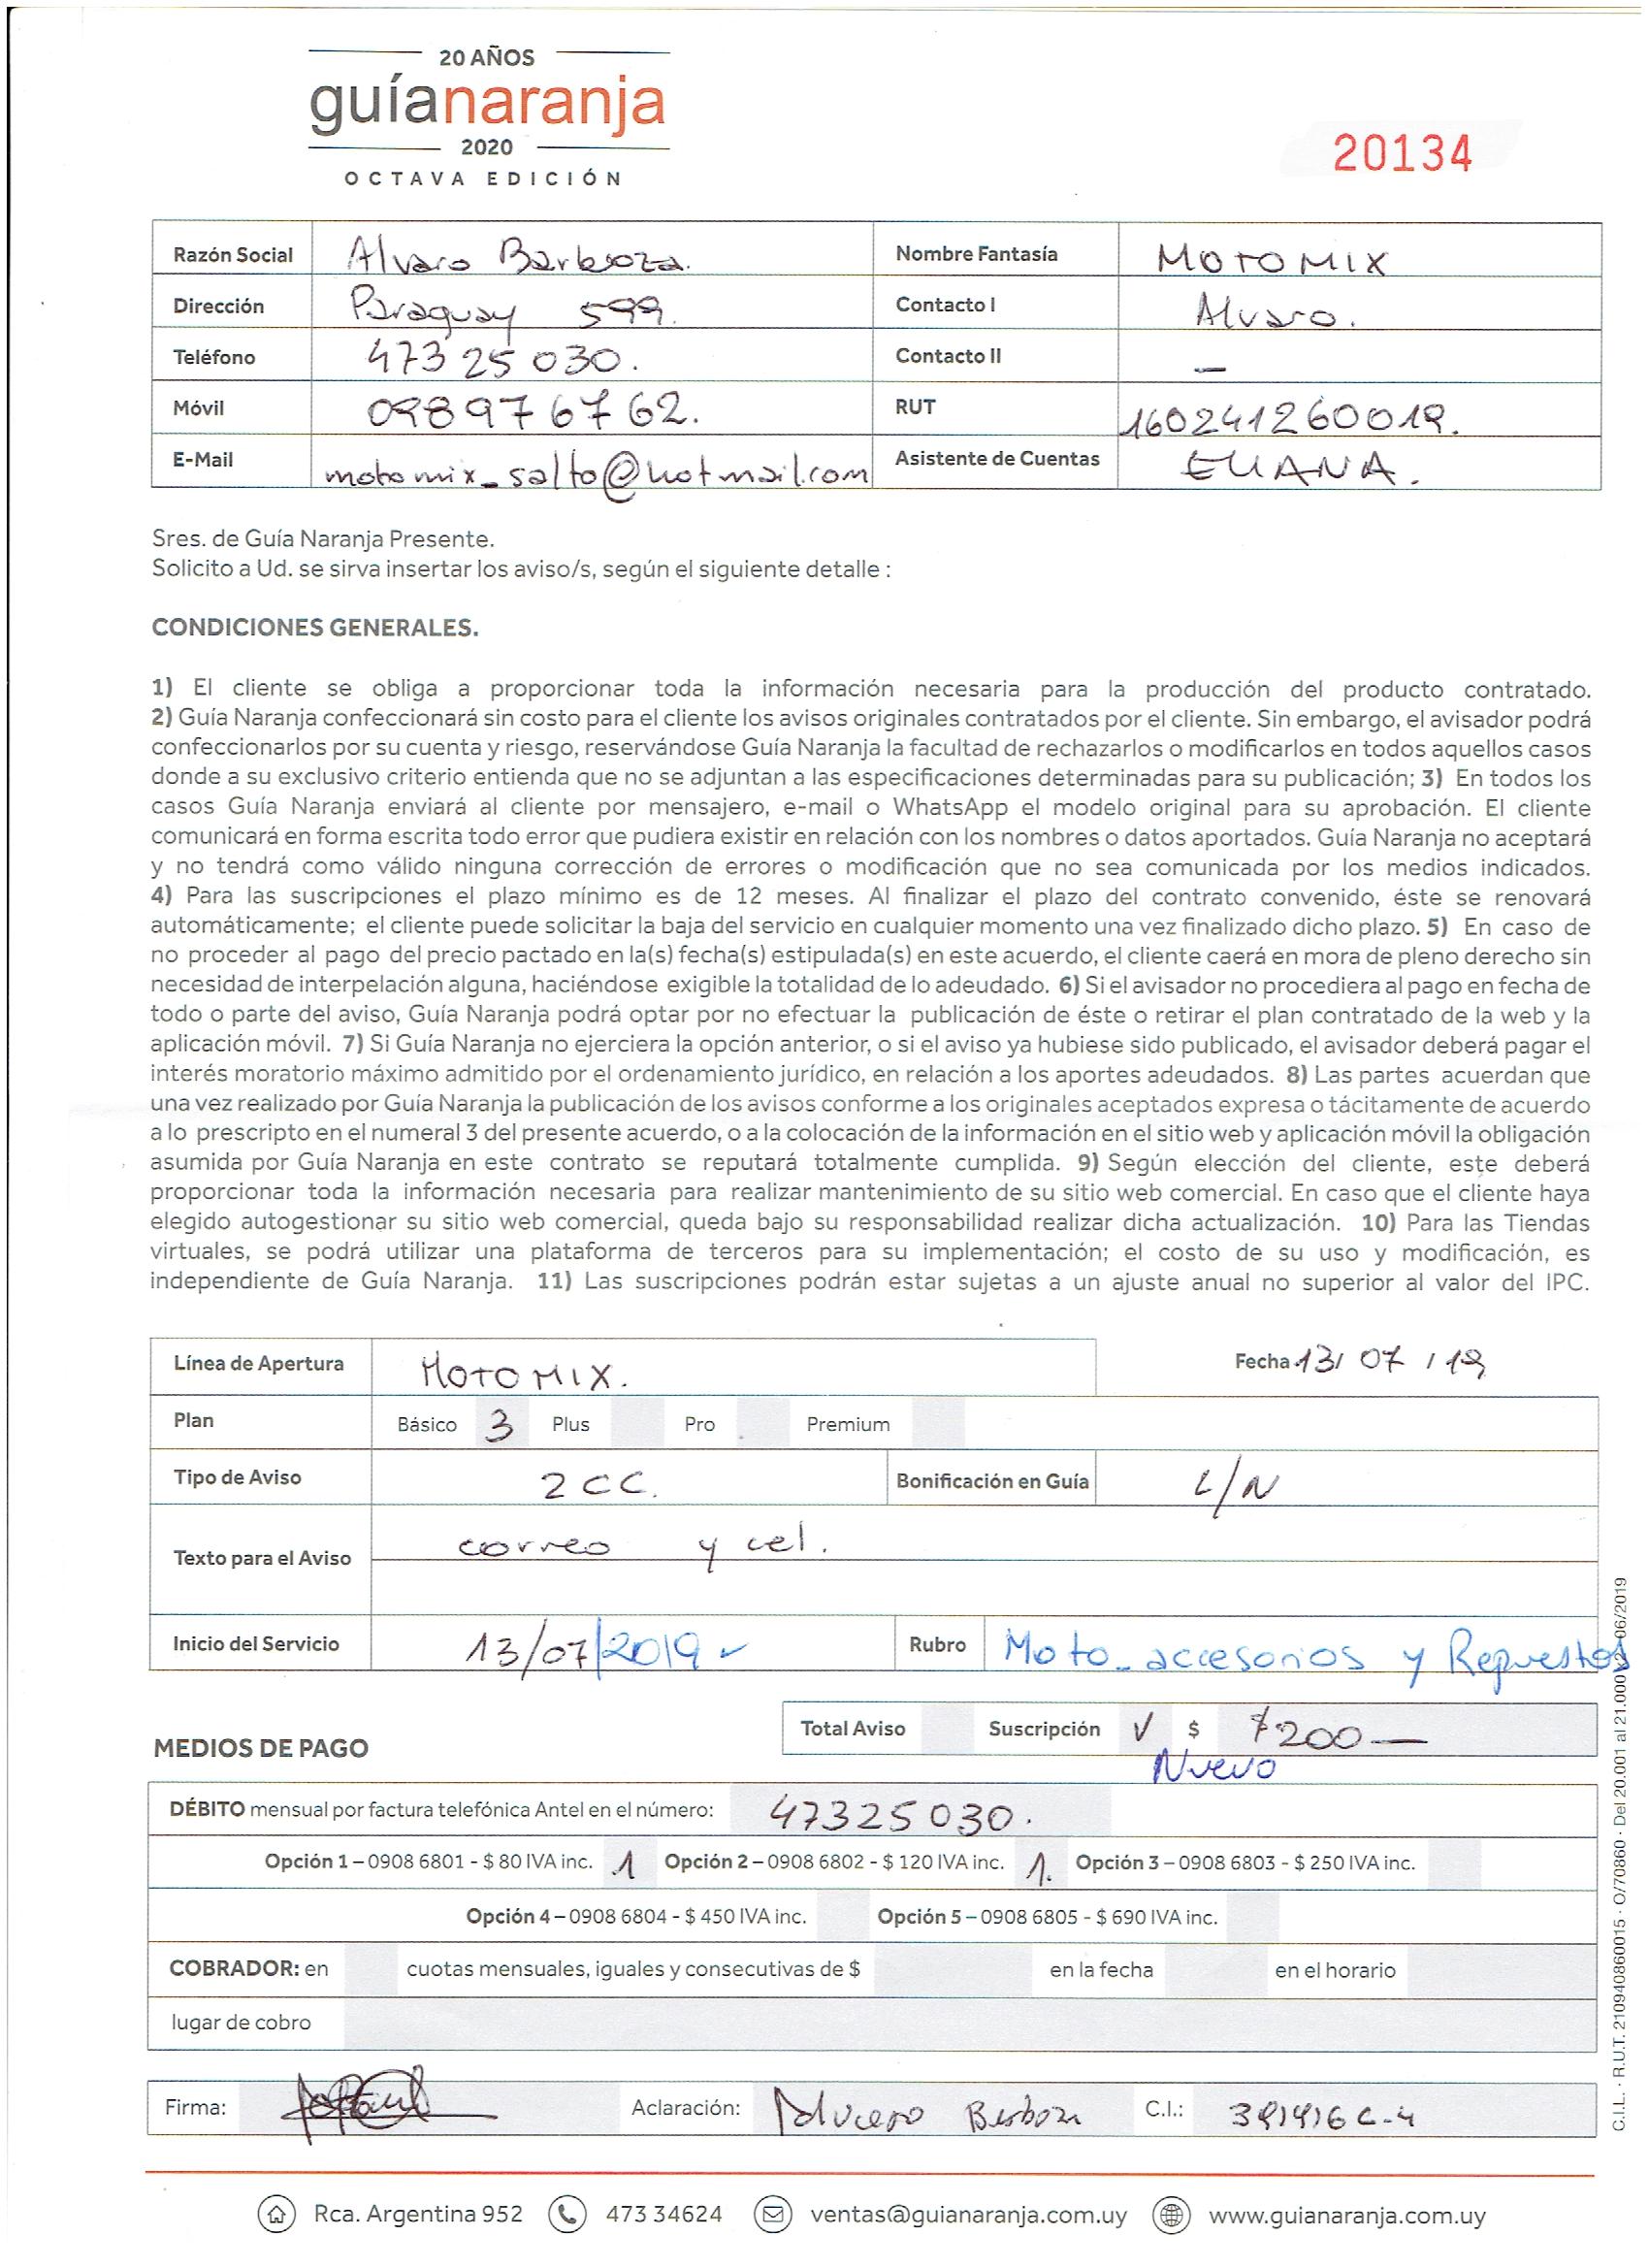 20 AÑOS
guíanaranja
2020
OCTAVA EDICIÓN
20134
Razón Social Alvaro Barboza. Nombre Fantasía MOTOMIX
Dirección Paraguay 599. Contacto I Alvaro.
Teléfono 473 25 030. Contacto II —
Móvil 098976762. RUT 160241260019.
E-Mail motomix_salto@hotmail.com Asistente de Cuentas ELIANA.
Sres. de Guía Naranja Presente.
Solicito a Ud. se sirva insertar los aviso/s, según el siguiente detalle :
CONDICIONES GENERALES.
1) El cliente se obliga a proporcionar toda la información necesaria para la producción del producto contratado.
2) Guía Naranja confeccionará sin costo para el cliente los avisos originales contratados por el cliente. Sin embargo, el avisador podrá
confeccionarlos por su cuenta y riesgo, reservándose Guía Naranja la facultad de rechazarlos o modificarlos en todos aquellos casos
donde a su exclusivo criterio entienda que no se adjuntan a las especificaciones determinadas para su publicación; 3) En todos los
casos Guía Naranja enviará al cliente por mensajero, e-mail o WhatsApp el modelo original para su aprobación. El cliente
comunicará en forma escrita todo error que pudiera existir en relación con los nombres o datos aportados. Guía Naranja no aceptará
y no tendrá como válido ninguna corrección de errores o modificación que no sea comunicada por los medios indicados.
4) Para las suscripciones el plazo mínimo es de 12 meses. Al finalizar el plazo del contrato convenido, éste se renovará
automáticamente; el cliente puede solicitar la baja del servicio en cualquier momento una vez finalizado dicho plazo. 5) En caso de
no proceder al pago del precio pactado en la(s) fecha(s) estipulada(s) en este acuerdo, el cliente caerá en mora de pleno derecho sin
necesidad de interpelación alguna, haciéndose exigible la totalidad de lo adeudado. 6) Si el avisador no procediera al pago en fecha de
todo o parte del aviso, Guía Naranja podrá optar por no efectuar la publicación de éste o retirar el plan contratado de la web y la
aplicación móvil. 7) Si Guía Naranja no ejerciera la opción anterior, o si el aviso ya hubiese sido publicado, el avisador deberá pagar el
interés moratorio máximo admitido por el ordenamiento jurídico, en relación a los aportes adeudados. 8) Las partes acuerdan que
una vez realizado por Guía Naranja la publicación de los avisos conforme a los originales aceptados expresa o tácitamente de acuerdo
a lo prescripto en el numeral 3 del presente acuerdo, o a la colocación de la información en el sitio web y aplicación móvil la obligación
asumida por Guía Naranja en este contrato se reputará totalmente cumplida. 9) Según elección del cliente, este deberá
proporcionar toda la información necesaria para realizar mantenimiento de su sitio web comercial. En caso que el cliente haya
elegido autogestionar su sitio web comercial, queda bajo su responsabilidad realizar dicha actualización. 10) Para las Tiendas
virtuales, se podrá utilizar una plataforma de terceros para su implementación; el costo de su uso y modificación, es
independiente de Guía Naranja. 11) Las suscripciones podrán estar sujetas a un ajuste anual no superior al valor del IPC.
Línea de Apertura MOTOMIX. Fecha 13/ 07 / 19
Plan Básico 3 Plus Pro Premium
Tipo de Aviso 2 CC. Bonificación en Guía L/N
Texto para el Aviso correo y cel.
Inicio del Servicio 13/07/2019 ✓ Rubro Moto_accesorios y Repuestos
Total Aviso Suscripción ✓ $ $200—
Nuevo
MEDIOS DE PAGO
DÉBITO mensual por factura telefónica Antel en el número: 47325030.
Opción 1 – 0908 6801 - $ 80 IVA inc. 1 Opción 2 – 0908 6802 - $ 120 IVA inc. 1. Opción 3 – 0908 6803 - $ 250 IVA inc.
Opción 4 – 0908 6804 - $ 450 IVA inc. Opción 5 – 0908 6805 - $ 690 IVA inc.
COBRADOR: en cuotas mensuales, iguales y consecutivas de $ en la fecha en el horario
lugar de cobro
Firma: Aclaración: C.I.:
Rca. Argentina 952 473 34624 ventas@guianaranja.com.uy www.guianaranja.com.uy
C.I.L. · R.U.T. 210940860015 · O/70860 · Del 20.001 al 21.000 x2 06/2019